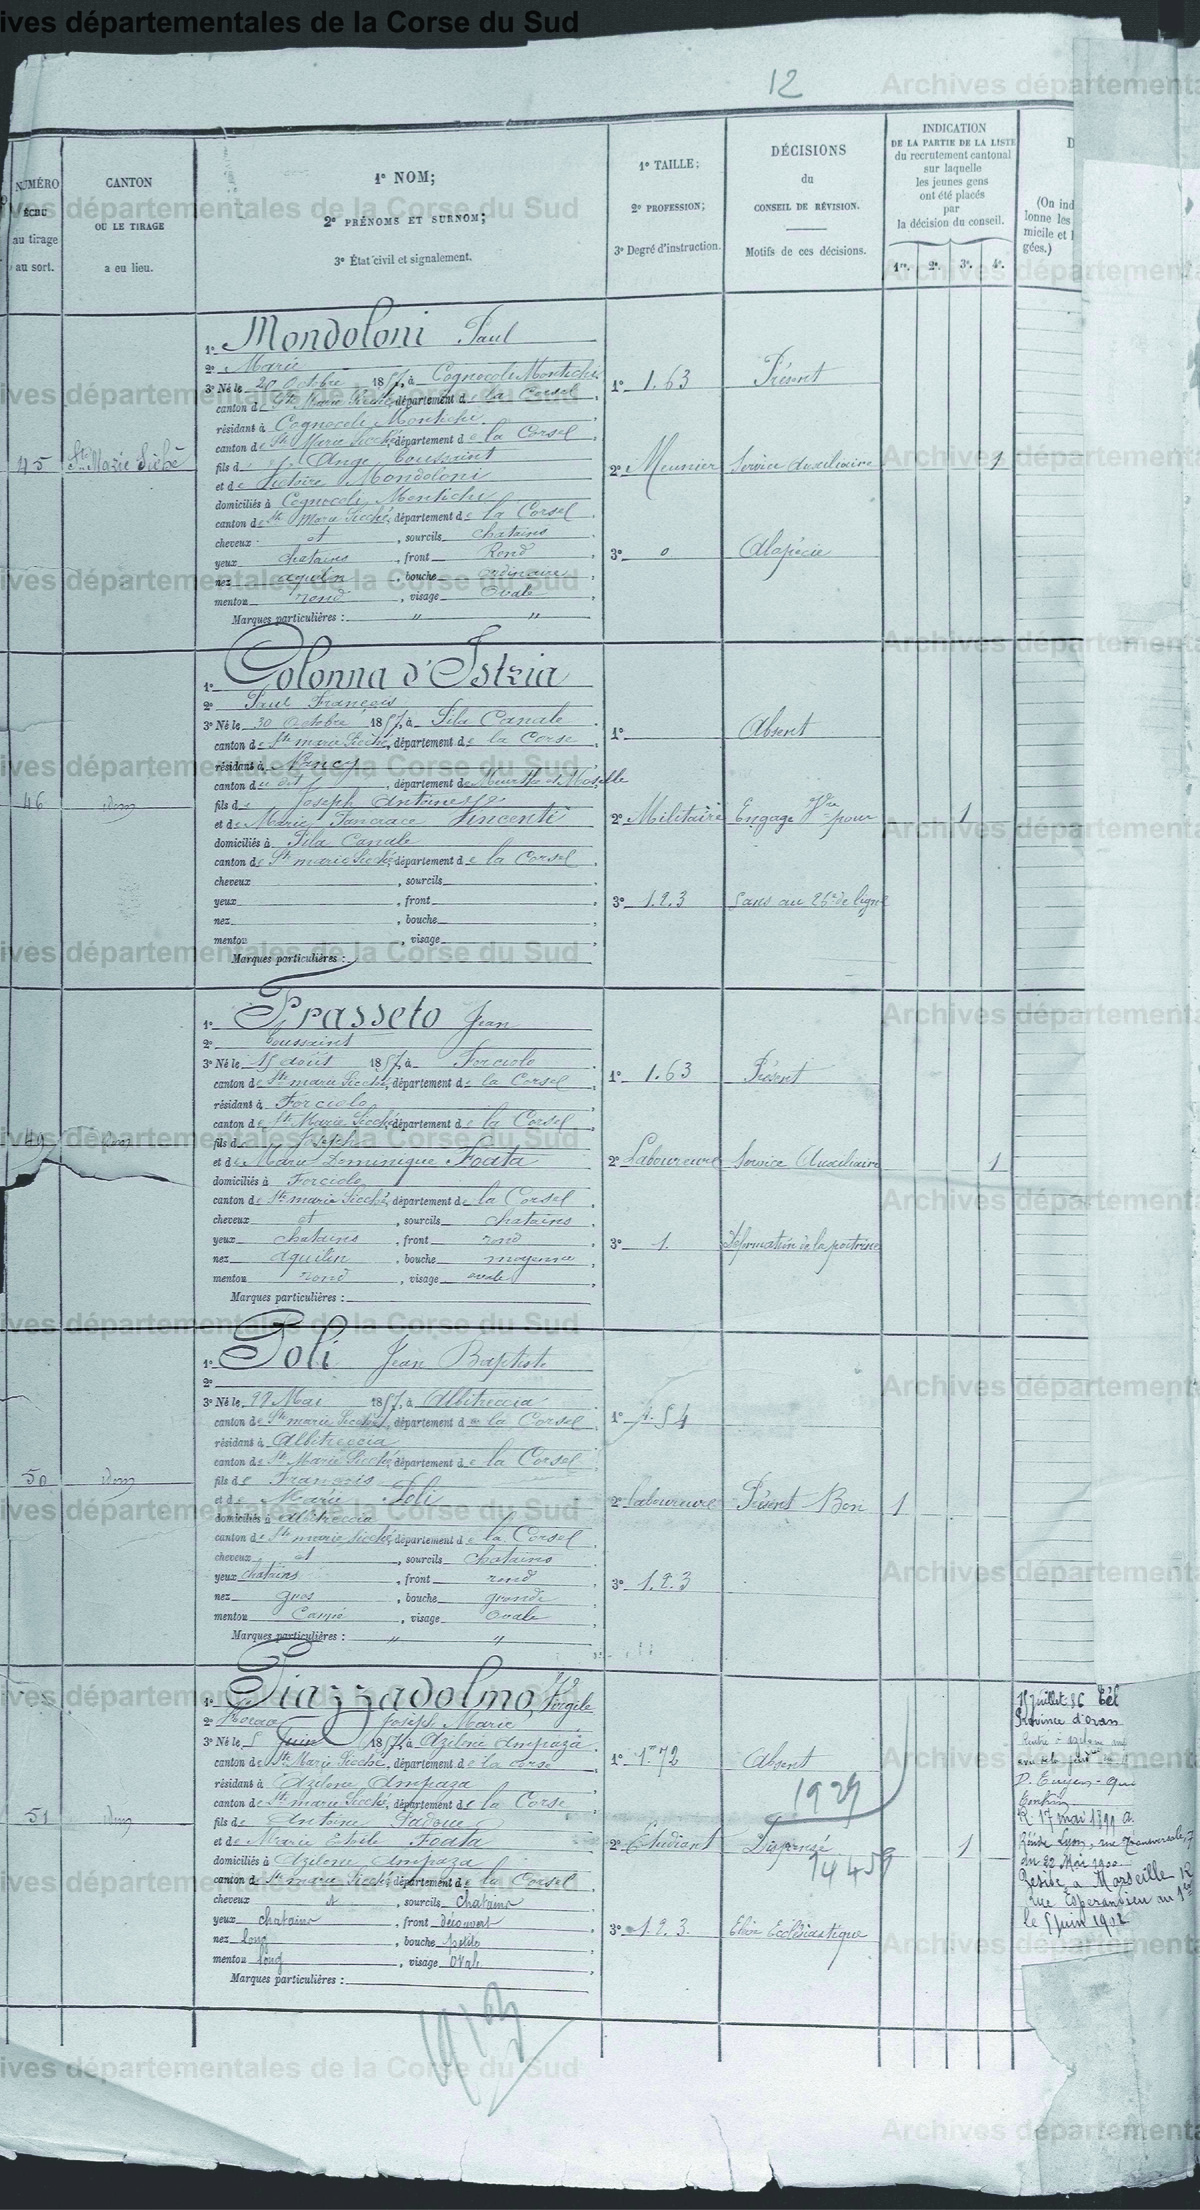 ives départementales de la Corse du Sud
12
NUMÉRO
ÉCHU
au tirage
au sort.
CANTON
OÙ LE TIRAGE
a eu lieu.
1º NOM;
2º PRÉNOMS ET SURNOM;
3º État civil et signalement.
1º TAILLE;
2º PROFESSION;
3º Degré d'instruction.
DÉCISIONS
du
CONSEIL DE RÉVISION.
Motifs de ces décisions.
INDICATION
DE LA PARTIE DE LA LISTE
du recrutement cantonal
sur laquelle
les jeunes gens
ont été placés
par
la décision du conseil.
1re. 2e. 3e. 4e.
D
(On ind
lonne les
micile et
gées.)
45 Ste Marie Sicché
1º Mondoloni Paul
2º Marie
3º Né le 20 Octobre 1857, à Cognocoli Montichi
canton de Ste Marie Sicché, département de la Corse
résidant à Cognocoli Montichi
canton de Ste Marie Sicché, département de la Corse
fils de Ange Toussaint
et de Mondoloni
domiciliés à Cognocoli Montichi
canton de Ste Marie Sicché, département de la Corse
cheveux et, sourcils chatains
yeux chatains, front Rond
nez aquilin, bouche ordinaire
menton rond, visage Ovale
Marques particulières : " "
1º 1.63 Présent
2º Meunier Service Auxiliaire 1
3º 0 Alapécie
46 idem
1º Colonna d'Istria
2º Paul François
3º Né le 30 Octobre 1857, à Pila Canale
canton de Ste marie Sicché, département de la Corse
résidant à Nancy
canton du dit, département de Meurthe et Moselle
fils de Joseph Antoine
et de Marie Pancrace Vincenti
domiciliés à Pila Canale
canton de Ste marie Sicché, département de la Corse
cheveux , sourcils
yeux , front
nez , bouche
menton , visage
Marques particulières :
1º Absent
2º Militaire Engagé Vre pour 1
3º 1.2.3 5 ans au 26e de ligne
49 idem
1º Frasseto Jean
2º Toussaint
3º Né le 15 août 1857, à Forciolo
canton de Ste marie Sicché, département de la Corse
résidant à Forciolo
canton de Ste Marie Sicché, département de la Corse
fils de Joseph
et de Marie Dominique Foata
domiciliés à Forciolo
canton de Ste marie Sicché, département de la Corse
cheveux et, sourcils chatains
yeux chatains, front rond
nez aquilin, bouche moyenne
menton rond, visage ovale
Marques particulières :
1º 1.63 Présent
2º Laboureur Service Auxiliaire 1
3º 1. Déformation de la poitrine
50 idem
1º Poli Jean Baptiste
2º
3º Né le Mai 1857, à Albitreccia
canton de Ste marie Sicché, département de la Corse
résidant à Albitreccia
canton de Ste Marie Sicché, département de la Corse
fils de François
et de Marie Poli
domiciliés à Albitreccia
canton de Ste marie Sicché, département de la Corse
cheveux et, sourcils chatains
yeux chatains, front rond
nez gros, bouche grande
menton, visage Ovale
Marques particulières : " "
1º 1.54
2º Laboureur Présent Bon 1
3º 1.2.3
51 idem
1º Piazzadolmo, Virgile
2º Joseph Marie
3º Né le 5 Juin 1857, à Azilone Ampaza
canton de Ste Marie Sicché, département de la Corse
résidant à Azilone Ampaza
canton de Ste marie Sicché, département de la Corse
fils de Antoine Padoue
et de Marie Foata
domiciliés à Azilone Ampaza
canton de Ste marie Sicché, département de la Corse
cheveux et, sourcils chatains
yeux chatains, front découvert
nez long, bouche petite
menton long, visage Ovale
Marques particulières :
1º 1m72 Absent
1929
2º Etudiant Dispensé 1
14459
3º 1.2.3. Elève Ecclésiastique
15 Juillet 86
Province d'Oran
R. 17 mai 1899
Réside Lyon, rue Transversale, 7
du 22 Mai 1900
Réside à Marseille
Rue Esperandieu au 1er
le 5 Juin 1902